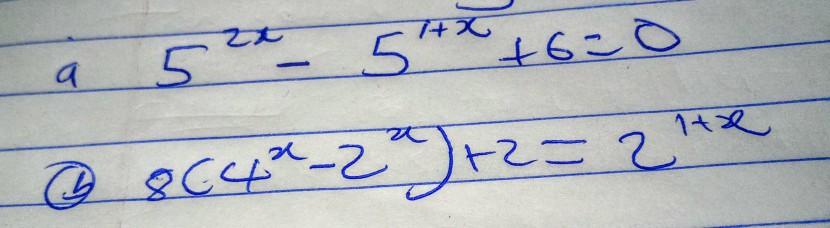 a 5^{2x} - 5^{1+x} + 6 = 0
(b) 8(4^x - 2^x) + 2 = 2^{1+x}